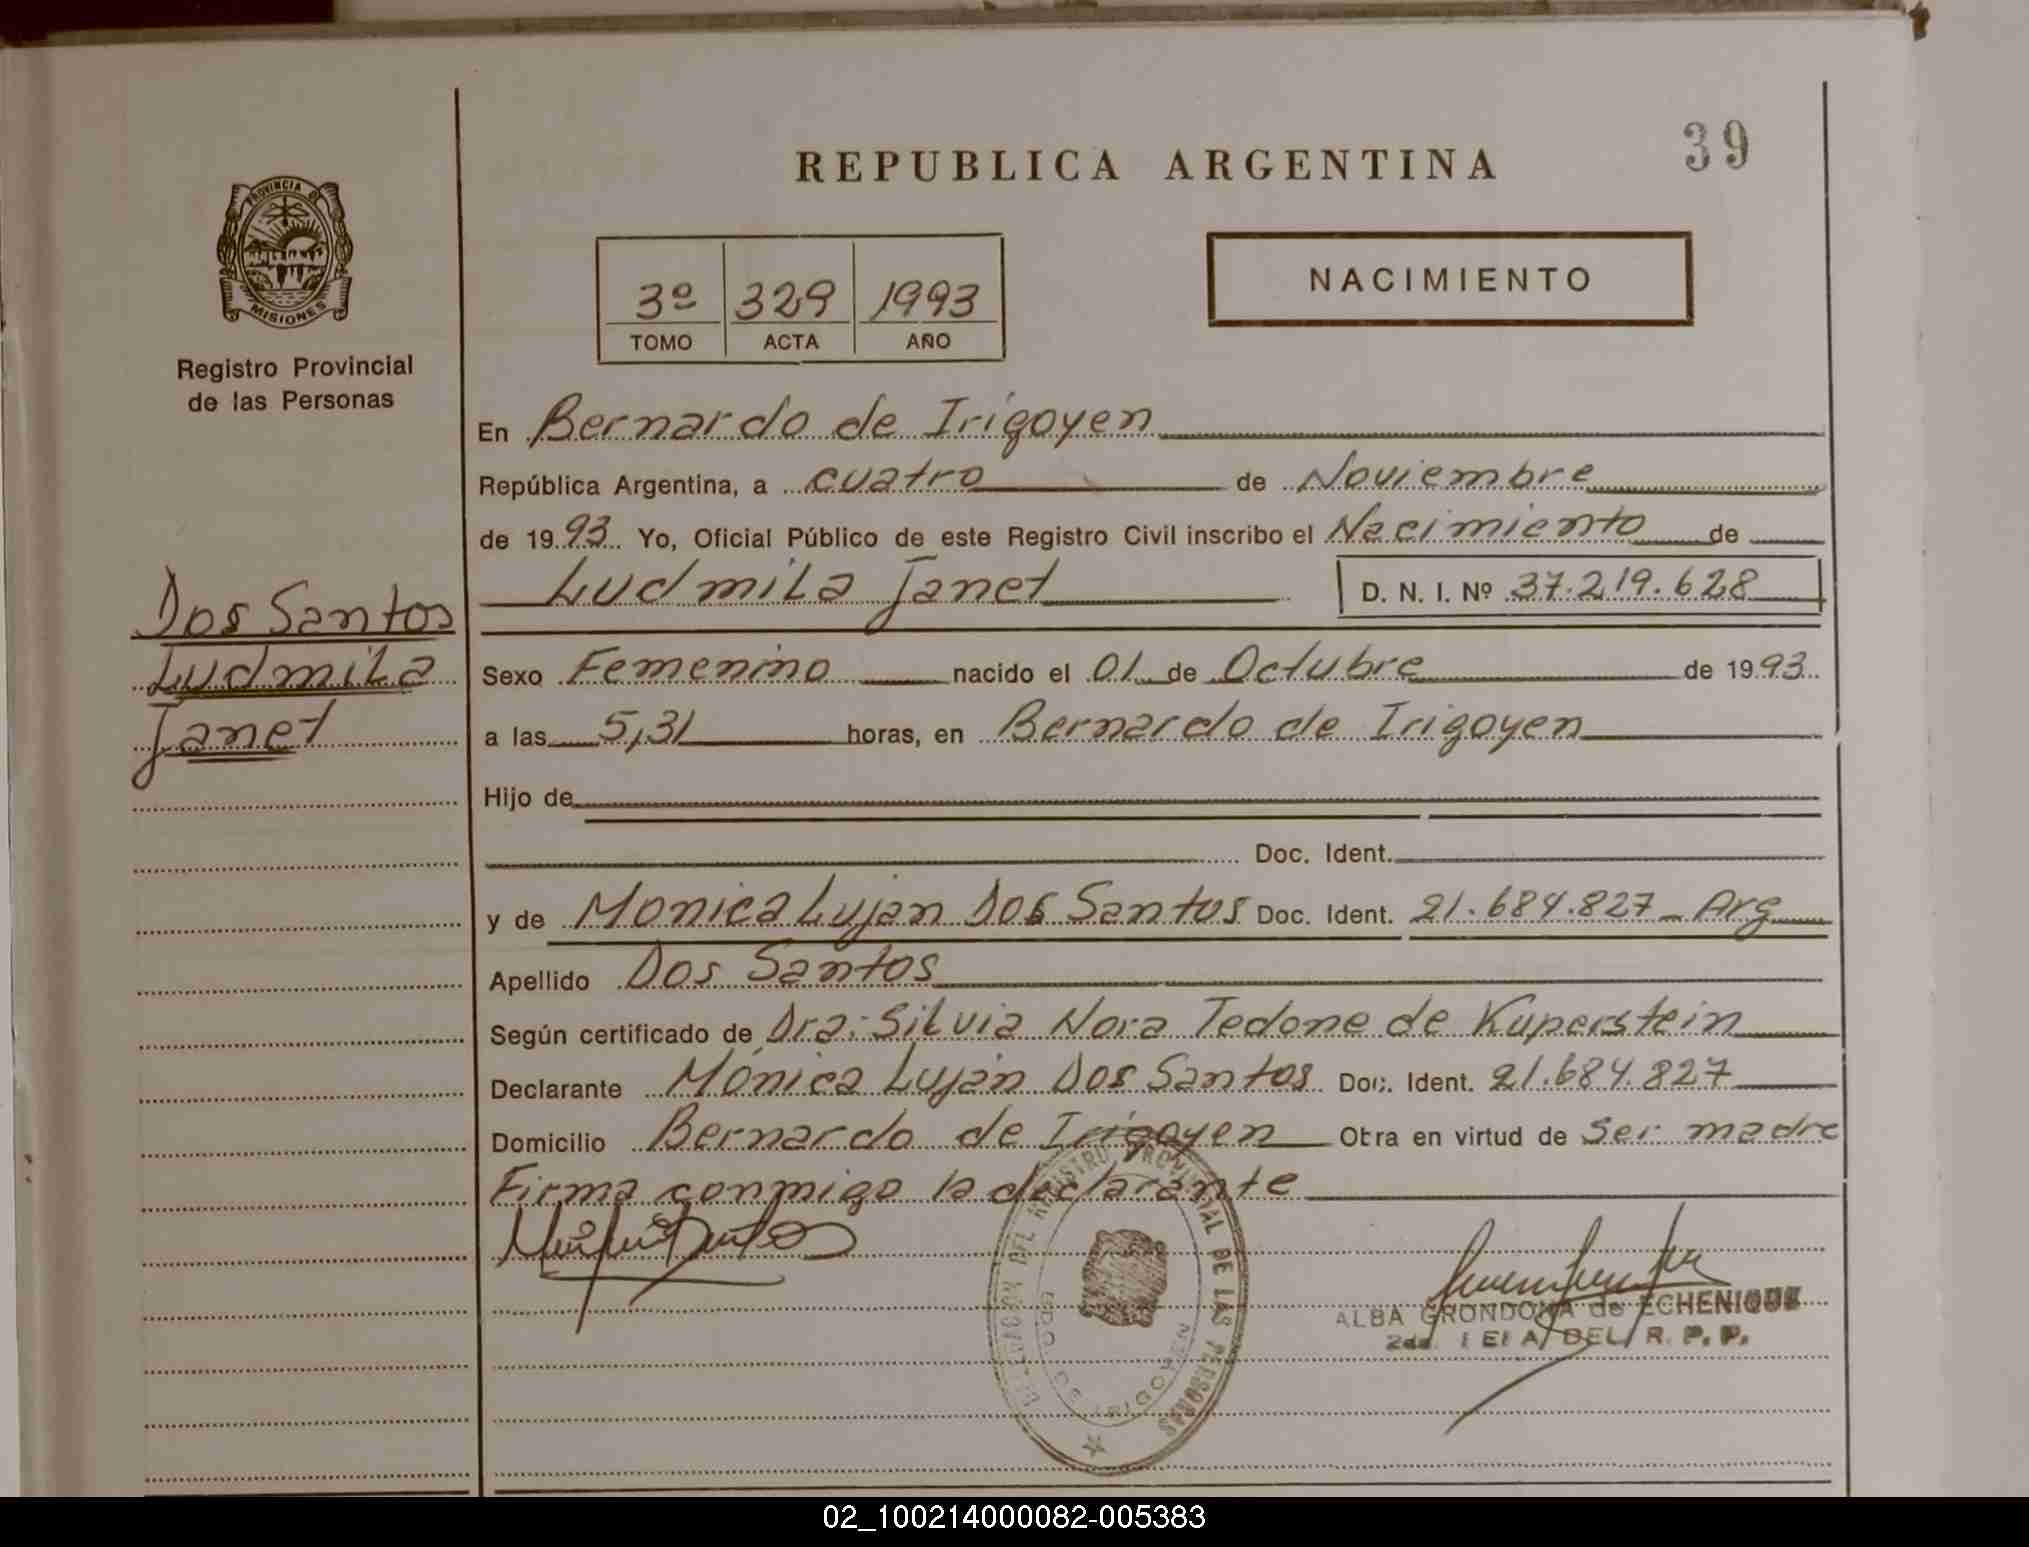 39
REPUBLICA ARGENTINA
PROVINCIA DE
MISIONES
Registro Provincial
de las Personas
3º 329 1993
TOMO ACTA AÑO
NACIMIENTO
En Bernardo de Irigoyen
República Argentina, a cuatro de Noviembre
de 1993 Yo, Oficial Público de este Registro Civil inscribo el Nacimiento de
Ludmila Janet D. N. I. Nº 37.219.628
Dos Santos
Ludmila
Janet
Sexo Femenino nacido el 01 de Octubre de 1993
a las 5,31 horas, en Bernardo de Irigoyen
Hijo de
Doc. Ident.
y de Monica Lujan Dos Santos Doc. Ident. 21.684.827 - Arg
Apellido Dos Santos
Según certificado de Dra. Silvia Nora Tedone de Kuperstein
Declarante Mónica Luján Dos Santos Doc. Ident. 21.684.827
Domicilio Bernardo de Irigoyen Otra en virtud de ser madre
Firma conmigo la declarante
DEL REGISTRO PROVINCIAL DE LAS PERSONAS
ALBA GRONDONA de ECHENIQUE
DEL R. P. P.
02_100214000082-005383